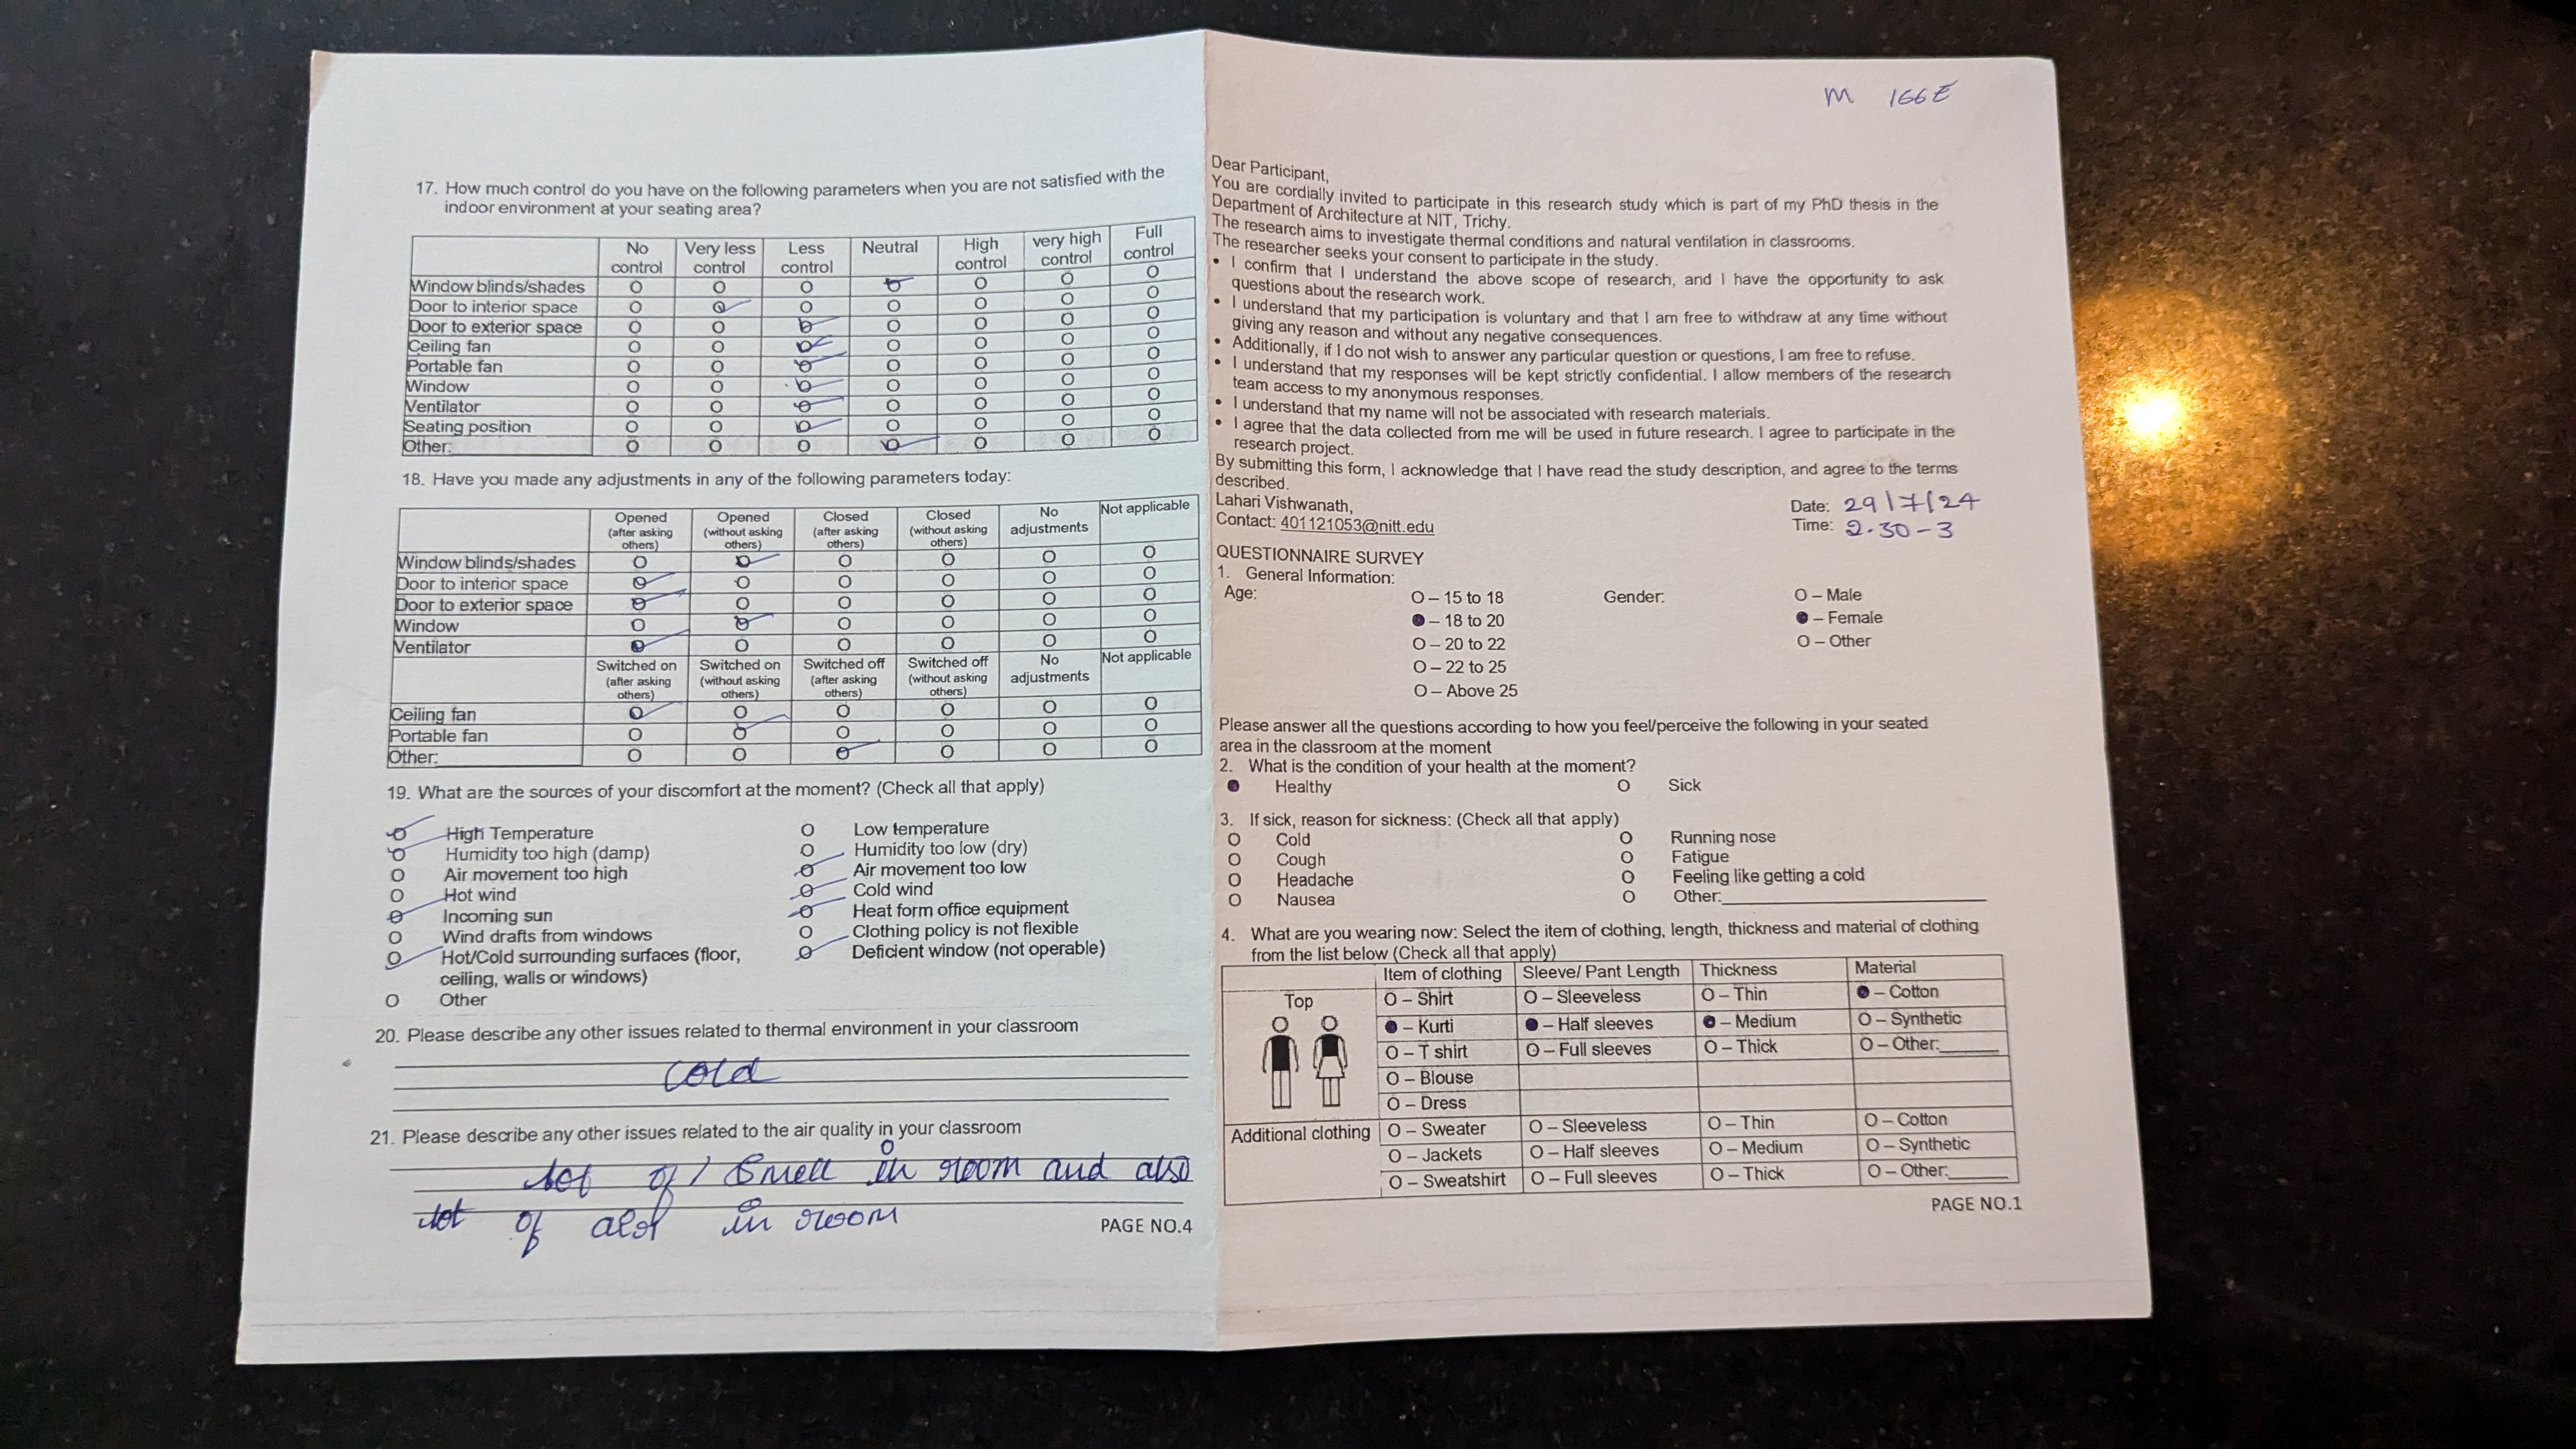 17. How much control do you have on the following parameters when you are not satisfied with the
indoor environment at your seating area?
No control Very less control Less control Neutral High control very high control Full control
Window blinds/shades O O O O O O O
Door to interior space O O O O O O O
Door to exterior space O O O O O O O
Ceiling fan O O O O O O O
Portable fan O O O O O O O
Window O O O O O O O
Ventilator O O O O O O O
Seating position O O O O O O O
Other: O O O O O O O
18. Have you made any adjustments in any of the following parameters today:
Opened (after asking others) Opened (without asking others) Closed (after asking others) Closed (without asking others) No adjustments Not applicable
Window blinds/shades O O O O O O
Door to interior space O O O O O O
Door to exterior space O O O O O O
Window O O O O O O
Ventilator O O O O O O
Switched on (after asking others) Switched on (without asking others) Switched off (after asking others) Switched off (without asking others) No adjustments Not applicable
Ceiling fan O O O O O O
Portable fan O O O O O O
Other: O O O O O O
19. What are the sources of your discomfort at the moment? (Check all that apply)
O High Temperature O Low temperature
O Humidity too high (damp) O Humidity too low (dry)
O Air movement too high O Air movement too low
O Hot wind O Cold wind
O Incoming sun O Heat form office equipment
O Wind drafts from windows O Clothing policy is not flexible
O Hot/Cold surrounding surfaces (floor, O Deficient window (not operable)
ceiling, walls or windows)
O Other
20. Please describe any other issues related to thermal environment in your classroom
cold
21. Please describe any other issues related to the air quality in your classroom
lot of smell in room and also
lot of in room
PAGE NO.4
M 166E
Dear Participant,
You are cordially invited to participate in this research study which is part of my PhD thesis in the
Department of Architecture at NIT, Trichy.
The research aims to investigate thermal conditions and natural ventilation in classrooms.
The researcher seeks your consent to participate in the study.
• I confirm that I understand the above scope of research, and I have the opportunity to ask
questions about the research work.
• I understand that my participation is voluntary and that I am free to withdraw at any time without
giving any reason and without any negative consequences.
• Additionally, if I do not wish to answer any particular question or questions, I am free to refuse.
• I understand that my responses will be kept strictly confidential. I allow members of the research
team access to my anonymous responses.
• I understand that my name will not be associated with research materials.
• I agree that the data collected from me will be used in future research. I agree to participate in the
research project.
By submitting this form, I acknowledge that I have read the study description, and agree to the terms
described.
Lahari Vishwanath, Date: 29/7/24
Contact: 401121053@nitt.edu Time: 2.30-3
QUESTIONNAIRE SURVEY
1. General Information:
Age: O – 15 to 18 Gender: O – Male
● – 18 to 20 ● – Female
O – 20 to 22 O – Other
O – 22 to 25
O – Above 25
Please answer all the questions according to how you feel/perceive the following in your seated
area in the classroom at the moment
2. What is the condition of your health at the moment?
● Healthy O Sick
3. If sick, reason for sickness: (Check all that apply)
O Cold O Running nose
O Cough O Fatigue
O Headache O Feeling like getting a cold
O Nausea O Other:
4. What are you wearing now: Select the item of clothing, length, thickness and material of clothing
from the list below (Check all that apply)
Item of clothing Sleeve/ Pant Length Thickness Material
Top O – Shirt O – Sleeveless O – Thin ● – Cotton
● – Kurti ● – Half sleeves ● – Medium O – Synthetic
O – T shirt O – Full sleeves O – Thick O – Other:
O – Blouse
O – Dress
Additional clothing O – Sweater O – Sleeveless O – Thin O – Cotton
O – Jackets O – Half sleeves O – Medium O – Synthetic
O – Sweatshirt O – Full sleeves O – Thick O – Other:
PAGE NO.1